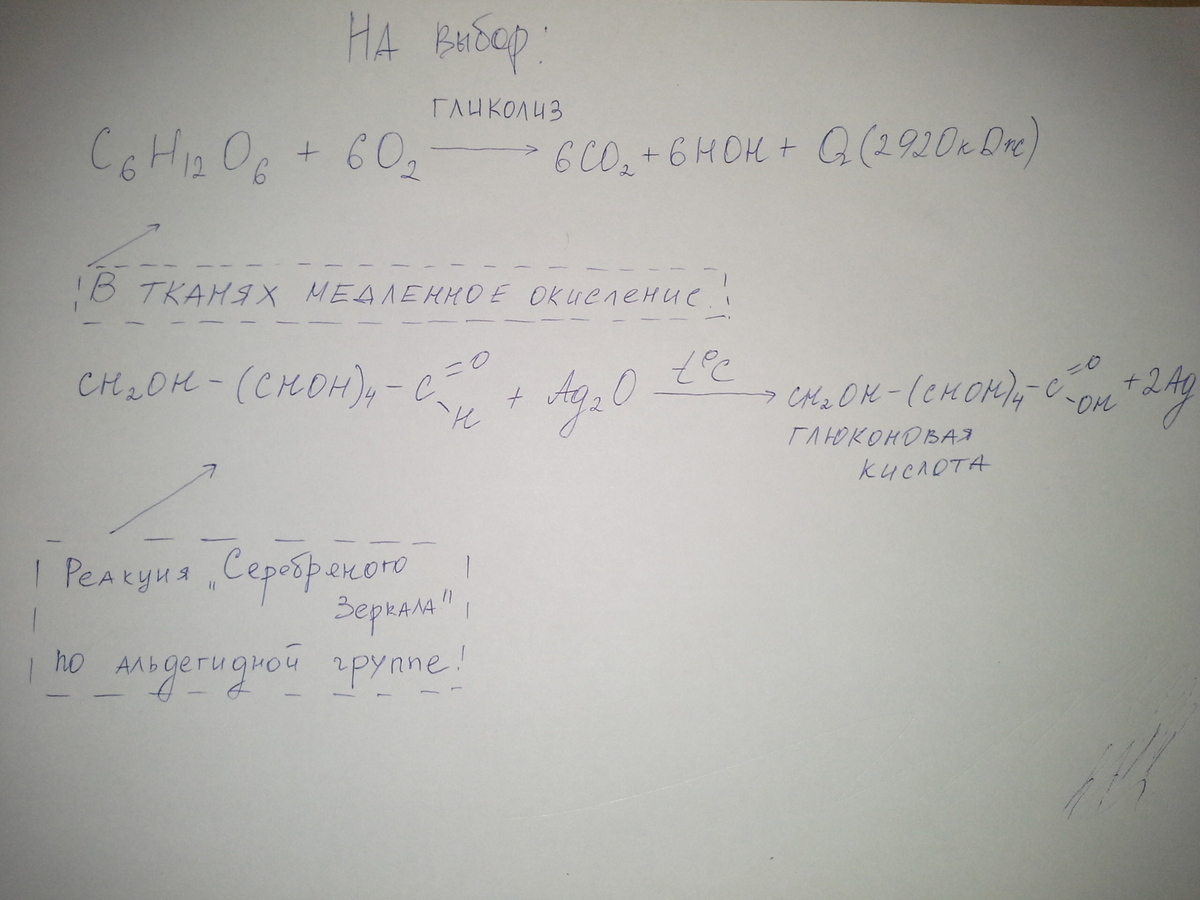 На выбор:
гликолиз
C₆H₁₂O₆ + 6O₂ → 6CO₂ + 6HOH + Q (2920кДж)
В тканях медленное окисление!
CH₂OH – (CHOH)₄ – C =O -H + Ag₂O t°C → CH₂OH – (CHOH)₄ – C =O -OH + 2Ag
глюконовая
кислота
Реакция „Серебряного
Зеркала"
по альдегидной группе!